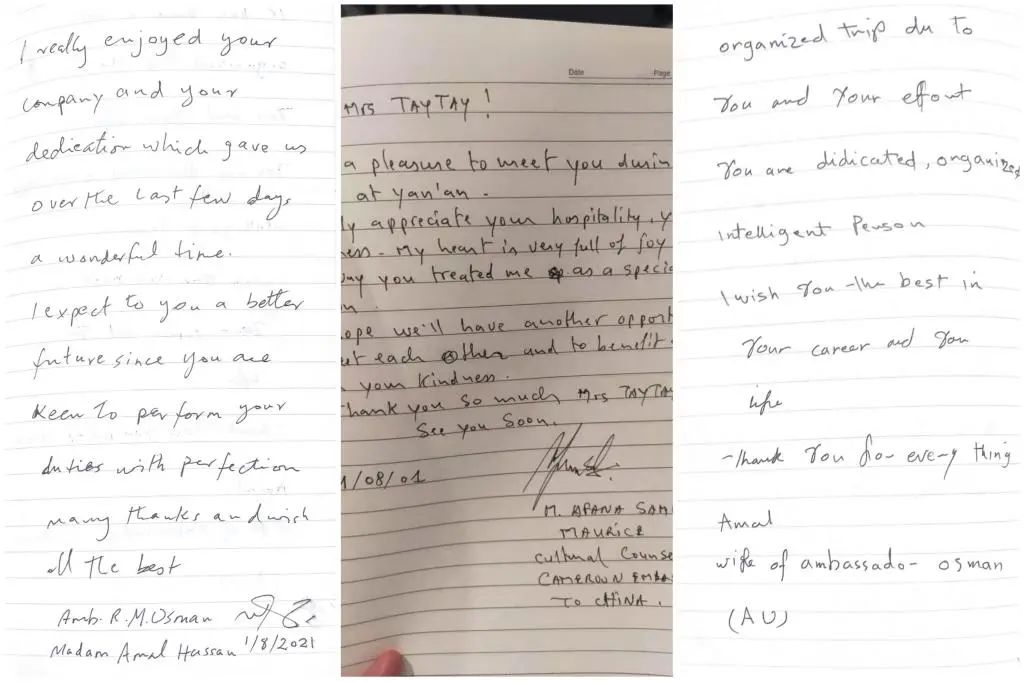 I really enjoyed your
company and your
dedication which gave us
over the last few days
a wonderful time.
I expect to you a better
future since you are
keen to perform your
duties with perfection
many thanks and wish
all the best
Amb. R.M. Osman
Madam Amal Hassan 1/8/2021
Date Page
Mrs TAYTAY !
a pleasure to meet you durin
at Yan'an.
ly appreciate your hospitality, y
ness. My heart is very full of joy
way you treated me as a specia
ope we'll have another opport
et each other and to benefit
your kindness.
hank you so much Mrs TAYTAY
See you soon.
1/08/01
M. APANA SAM
MAURICE
Cultural Counse
CAMEROUN EMBA
TO CHINA.
organized trip du to
You and Your effout
You are didicated, organized
intelligent Person
I wish You the best in
Your career and You
life
Thank You for every thing
Amal
wife of ambassador osman
(AU)